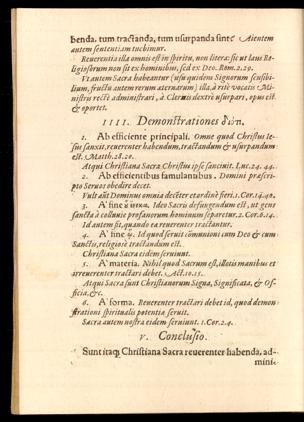 benda, tum tractanda, tum usurpanda sint? Aientem
autem sententiam tuebimur.
Reuerentia illa omnis est in spiritu, non literæ: sic ut laus Re-
ligiosorum non sit ex hominibus, sed ex Deo. Rom. 2.29.
Vt autem Sacra habeantur (usu quidem Signorum sensibi-
lium, fructu autem rerum æternarum) illa, à ritè vocatis Mi-
nistris rectè administrari, à Clericis dextrè usurpari, opus est
& oportet.
IIII. Demonstrationes διότι.
1. Ab efficiente principali. Omne quod Christus Ie-
sus sanxit, reuerenter habendum, tractandum & usurpandum
est. Matth. 28.20.
Atqui Christiana Sacra Christus ipse sanciuit. Luc. 24. 44.
2. Ab efficientibus famulantibus. Domini præscri-
pto Seruos obedire decet.
Vult aūt Dominus omnia decēter et ordine fieri. 1. Cor. 14.40.
3. A' fine
Ideo Sacris defungendum est, ut gens
sancta à colluuie profanorum hominum separetur. 2. Cor. 6.14.
Id autem fit, quando ea reuerenter tractantur.
4. A' fine
Id quod seruit cōmunioni cum Deo & cum
Sanctis, religiosè tractandum est.
Christiana Sacra eidem seruiunt.
5. A' materia. Nihil quod Sacrum est, illotis manibus et
irreuerenter tractari debet. Act. 10.15.
Atqui Sacra sunt Christianorum Signa, Significata, & Of-
ficia, &c.
6. A' forma. Reuerenter tractari debet id, quod demon-
strationi spiritualis potentiæ seruit.
Sacra autem nostra eidem seruiunt. 1. Cor. 2.4.
V. Conclusio.
Sunt itaq; Christiana Sacra reuerenter habenda, ad-
mini-